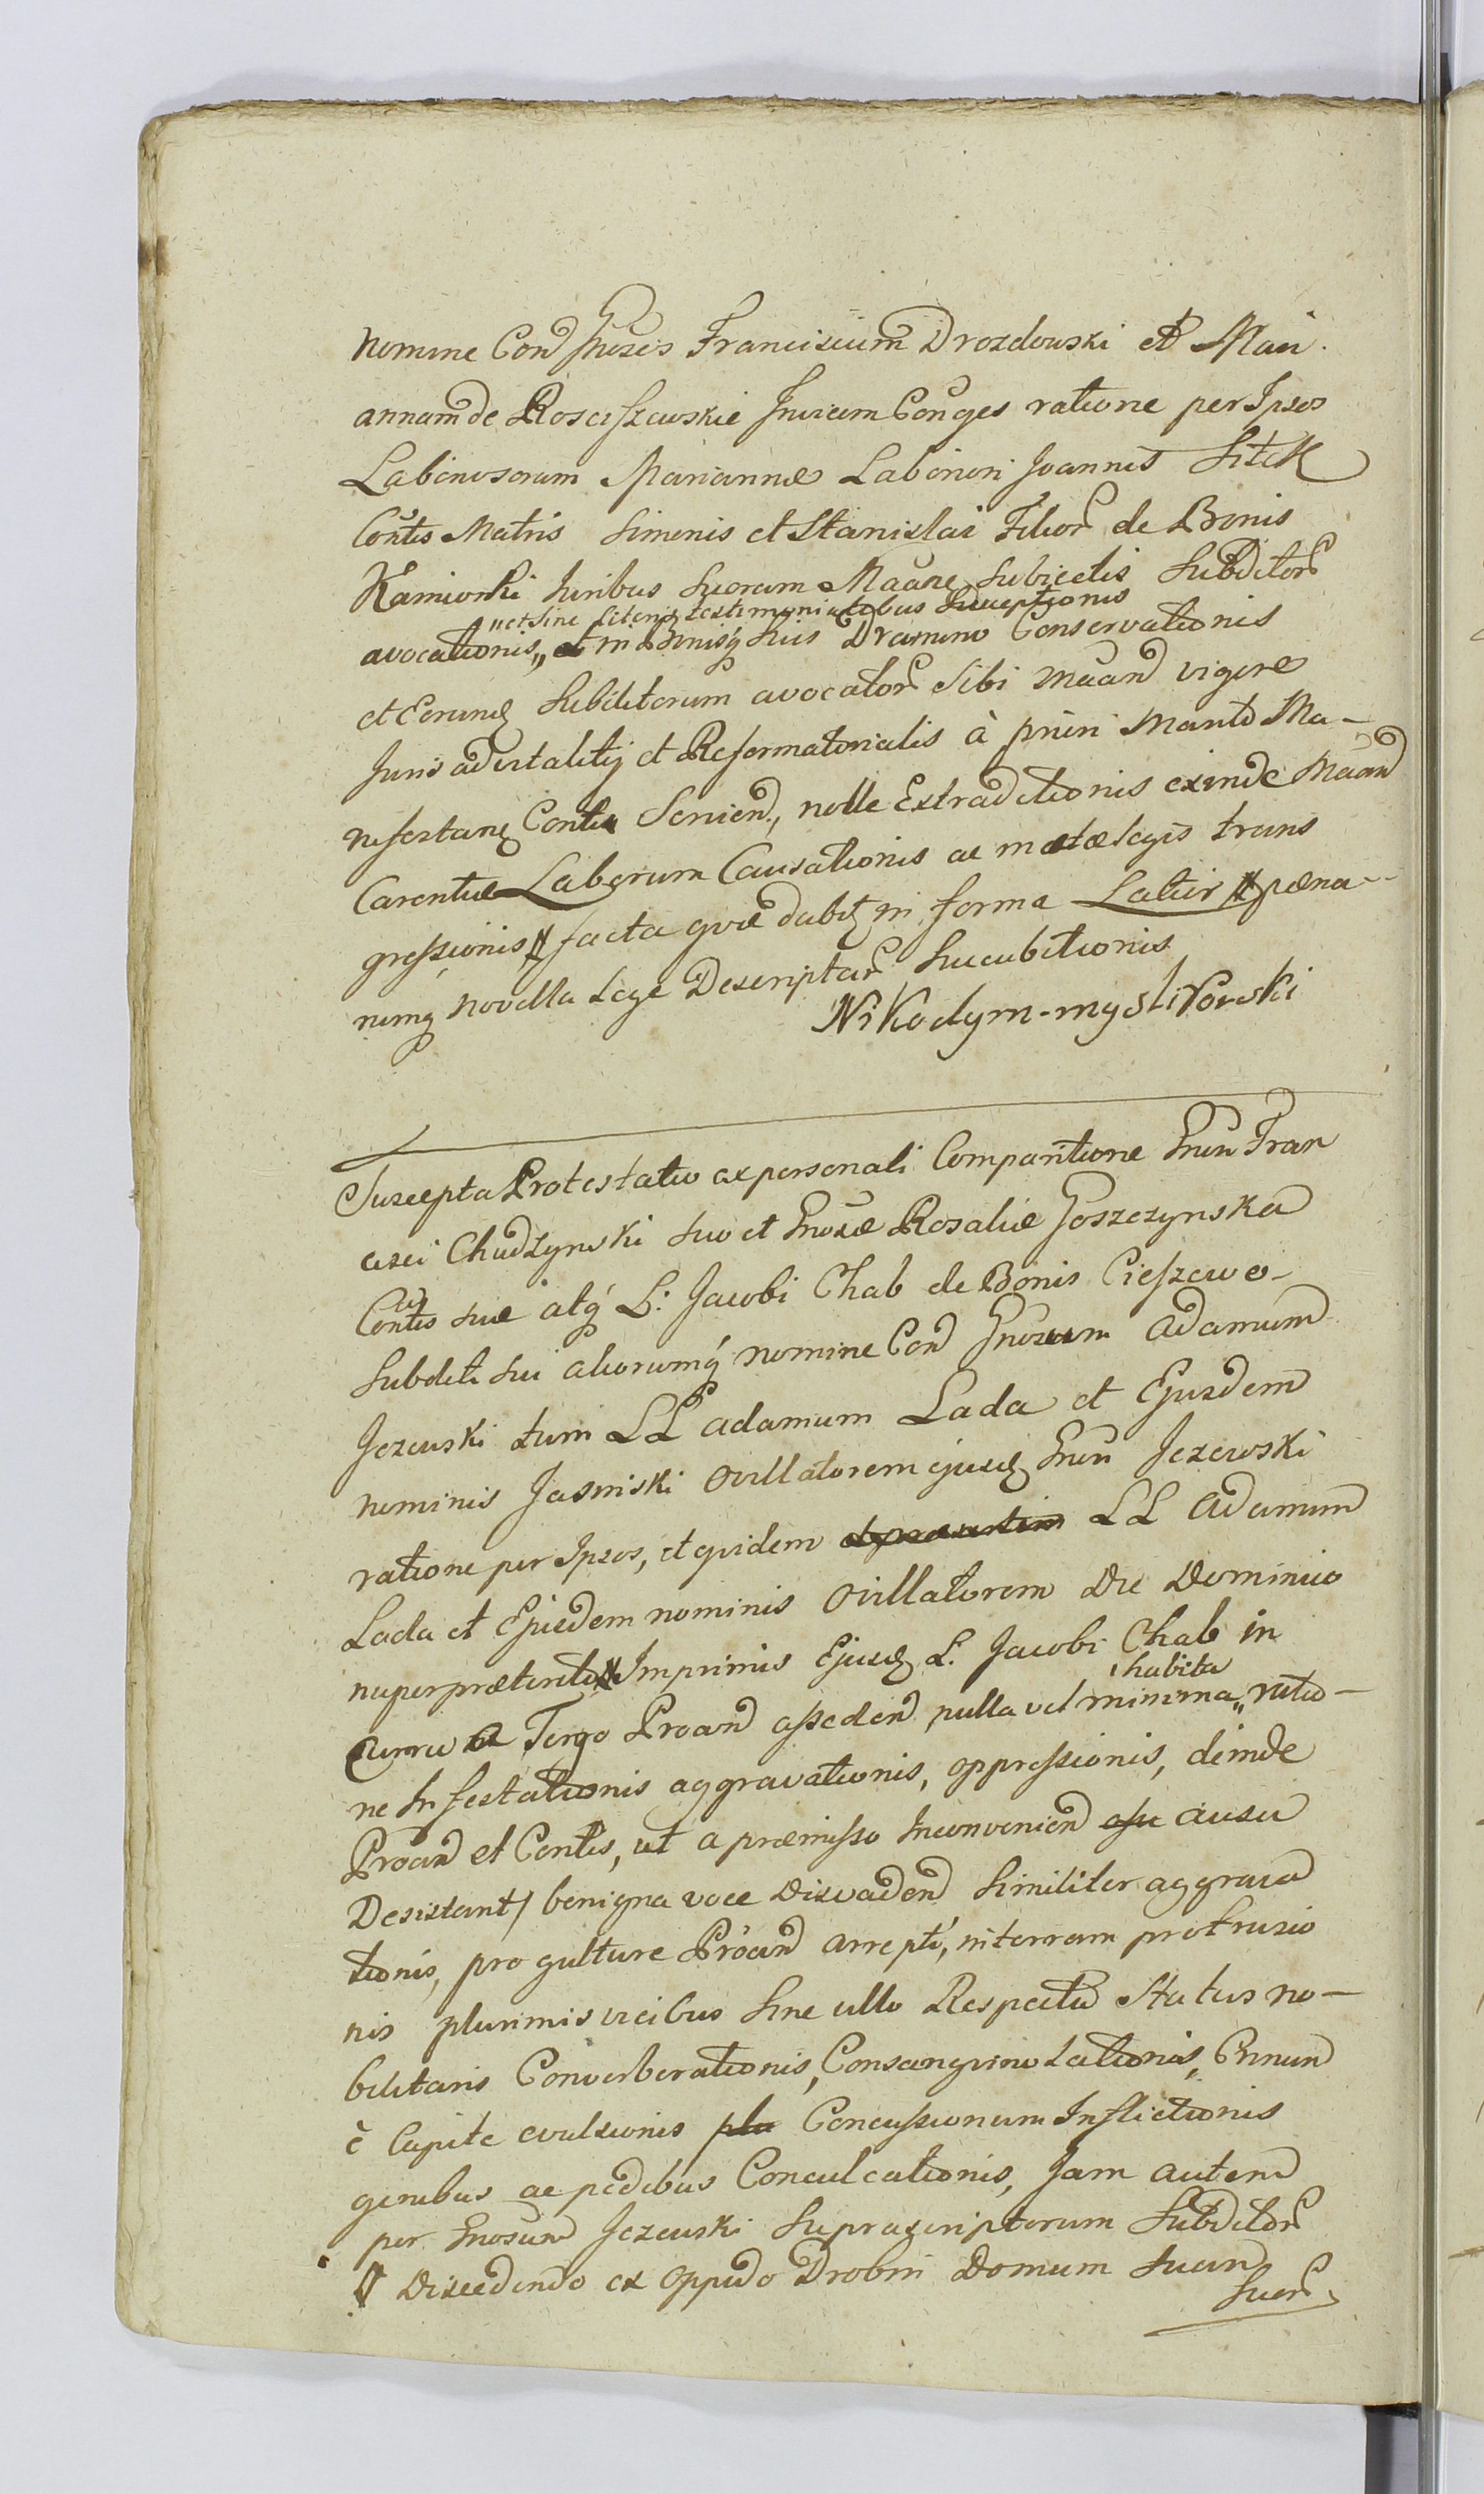 nomine Con Gnosos Franciscum Drozdowski et Mari
annam de Rosciszewskie Invicem Conjges ratione per Ipsos
Laboriosorum Mariannæ Laboriosi Joannis Sitek
Contis Matris Simonis et Stanislai Filior de Bonis
Kamionki Juribus suorum Maane subjectis Subditor
„et sine Literis testimonialibus Susceptionis
avocationis„ et in Bonisq suis Dramino Conservationis
et Eorund Subditorum avocator sibi Maand vigore
Juris advitalitij et Reformatorialis à priori Marito Ma-
nifestang Contis Servien, nolle Extraditionis exinde Maand
Carentiæ Laborum Causationis ac metæ legis trans
gressionis facta quæ dabit in forma Latior pæna
rumq novella Lege Descriptar Sucubitionis
Nikodym-mysliborski
Suscepta Protestatio ex personali Comparitione Gnsi Fran
cisci Chudzynski suo et Gnosæ Rosaliæ Goszczynska
Contis suæ atq L: Jacobi Chab de Bonis Cieszewo-
Subditi sui aliorumq nomine Con Gnosum Adamum
Jezewski tum LL Adamum Lada et Ejusdem
nominis Jasinski Ovillatorem ejusd Gnsi Jezewski
ratione per Ipsos, et quidem LL Adamum
Lada et Ejusdem nominis Ovillatorem Die Dominico
nuper præterito Imprimis Ejusd L: Jacobi Chab in
habita
Curru a Tergo Proand assedend nulla vel minima„ ratio-
ne Infestationis aggravationis, oppressionis, deinde
Proand et Contis, ut a præmisso Inconvenien ausu
Desistant benigna voce Disvadend similiter aggrava
tionis, pro gutture Proand arrepti, in terram protrusio
nis plurimis vicibus Sine ullo Respectu Status no-
bilitaris Converberationis, Consangvinolationis, Crinium
è Capite evulsionis Concussionum Inflictionis
genibus ac pedibus Conculcationis, Jam autem
per Gnosum Jezewski Suprascriptorum Subditor
Discedendo ex Oppido Drobin Domum suam
Suor